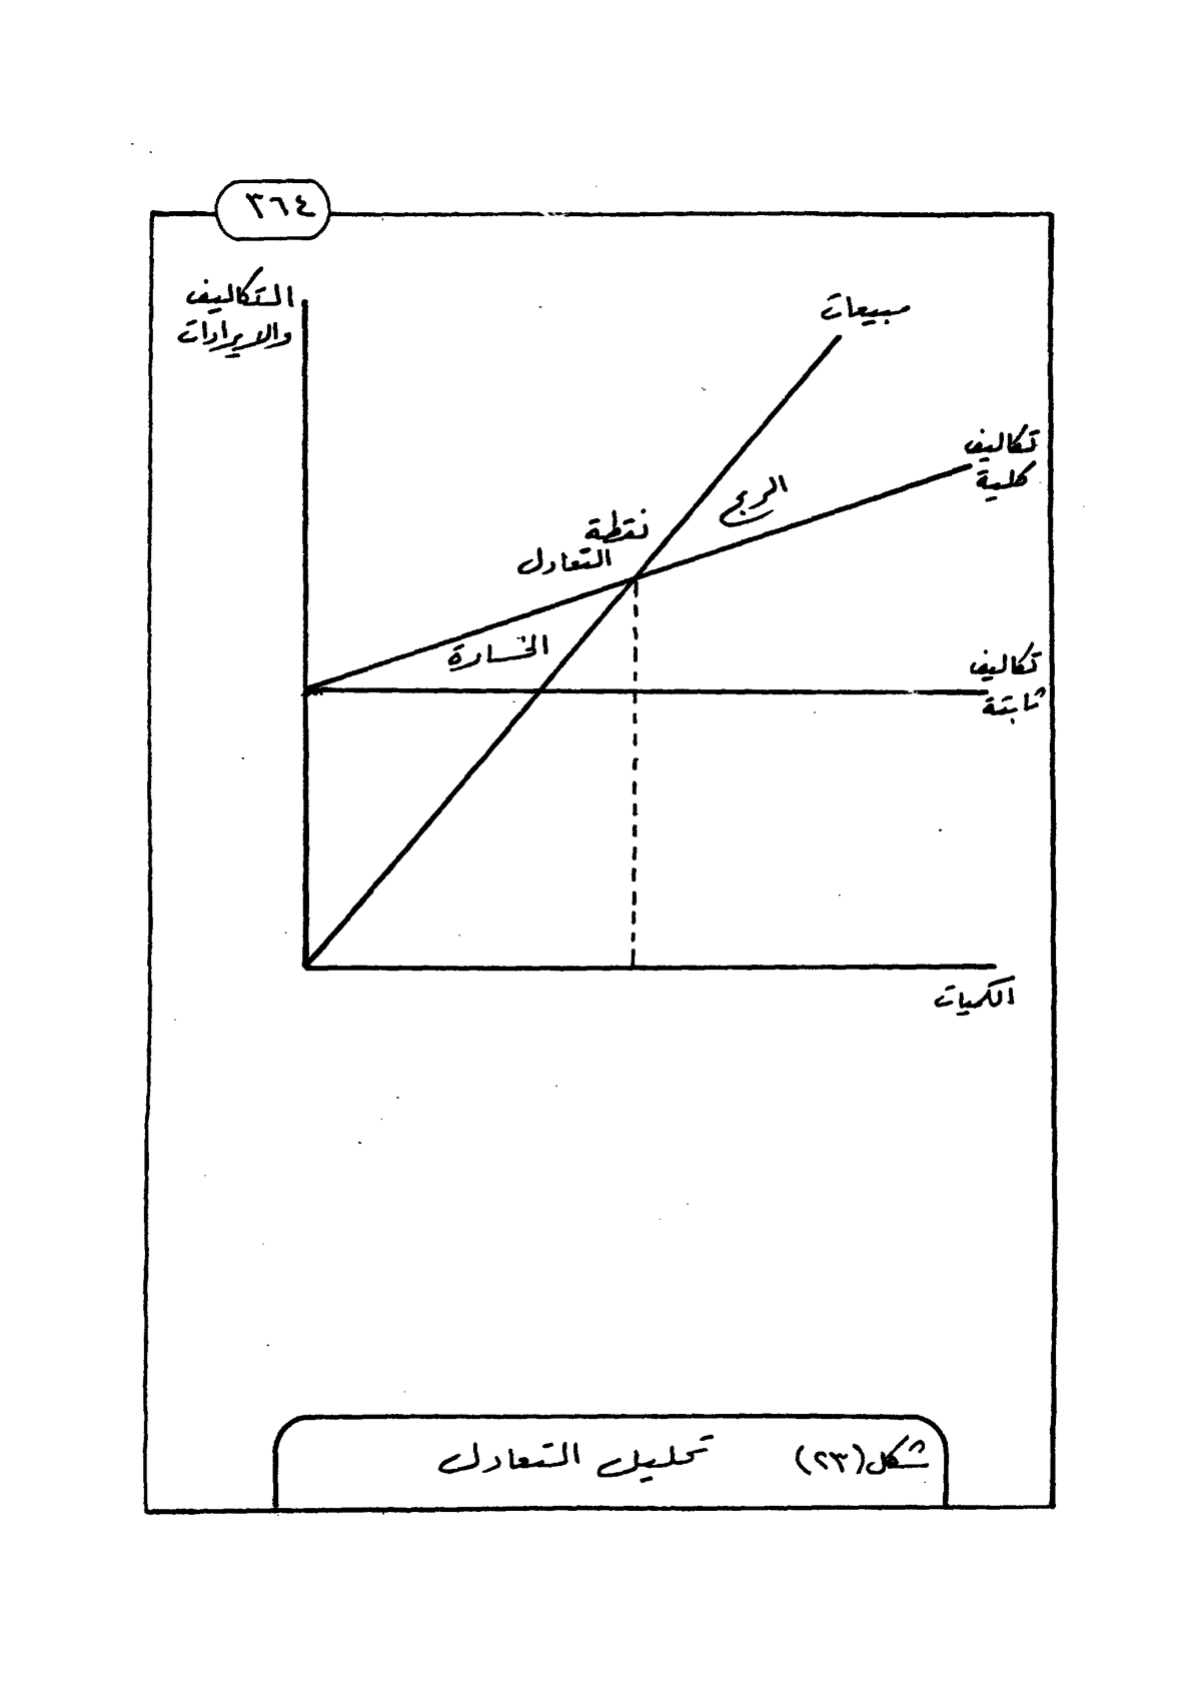 ٣٦٤
التكاليف
والايرادات
مبيعات
تكاليف
كلية
الربح
نقطة
التعادل
الخسارة
تكاليف
ثابتة
الكميات
شكل (٢٣) تحليل التعادل